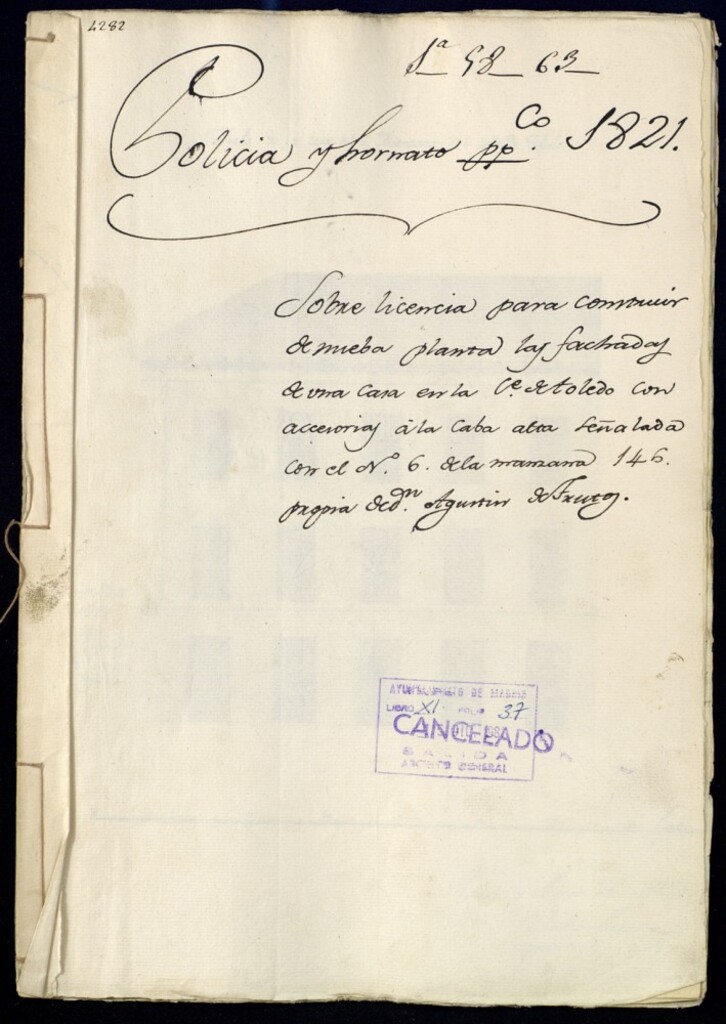 4282
1ª 58 63
Policia y hornato ppCo. 1821.
Sobre licencia para construir
de nueba planta las fachadas
de una casa en la Ce. de toledo con
accesorias á la Caba alta señalada
con el N.º 6. de la manzana 146.
propia de dn. Agustin de Frutos.
AYUNTAMIENTO DE MADRID
LIBRO XI FOLIO 37
CANCELADO
SALIDA
ARCHIVO GENERAL